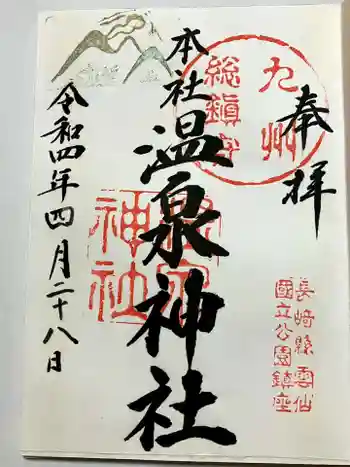 奉拝
九州
総鎮守
長崎縣雲仙
國立公園鎮座
本社
温泉神社
令和四年四月二十八日